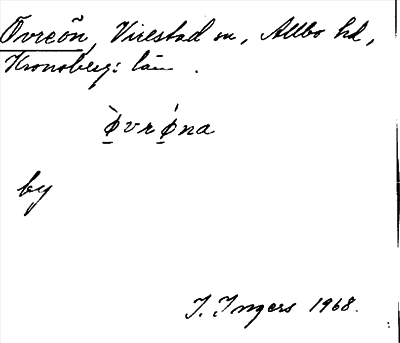 Övreön, Virestad sn, Allbo hd,
Kronobergs län.
ø̀vrǿna
by
I. Ingers 1968.